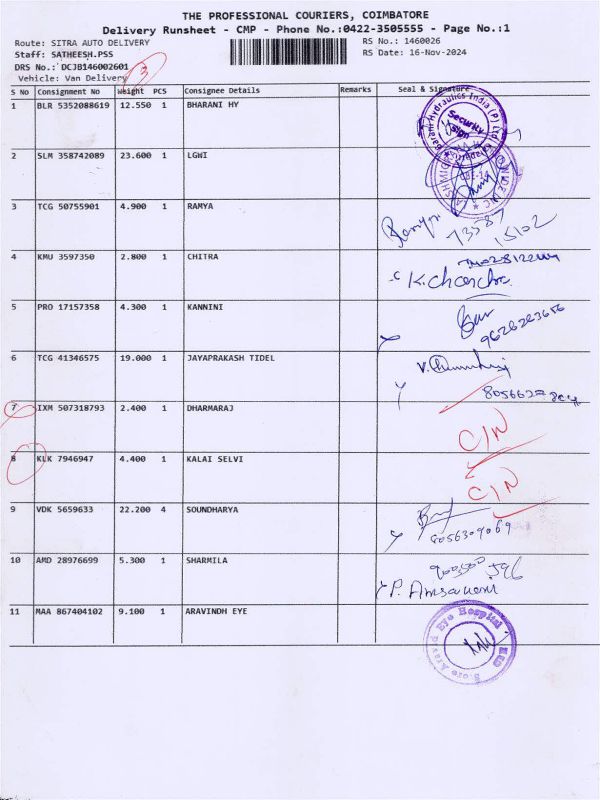 THE PROFESSIONAL COURIERS, COIMBATORE
Delivery Runsheet - CMP - Phone No.:0422-3505555 - Page No.:1
Route: SITRA AUTO DELIVERY
RS No.: 1460026
Staff: SATHEESH.PSS
RS Date: 16-Nov-2024
DRS No.: DCJB146002601
Vehicle: Van Delivery
3
S No Consignment No Weight PCS Consignee Details Remarks Seal & Signature
1 BLR 5352088619 12.550 1 BHARANI HY
Security
Sign
2 SLM 358742089 23.600 1 LGWI
3 TCG 50755901 4.900 1 RAMYA
Ramya
73587
15102
4 KMU 3597350 2.800 1 CHITRA
5 PRO 17157358 4.300 1 KANNINI
6 TCG 41346575 19.000 1 JAYAPRAKASH TIDEL
7 IXM 507318793 2.400 1 DHARMARAJ
C/N
8 KLK 7946947 4.400 1 KALAI SELVI
C/N
9 VDK 5659633 22.200 4 SOUNDHARYA
8056309069
10 AMD 28976699 5.300 1 SHARMILA
11 MAA 867404102 9.100 1 ARAVINDH EYE
Eye Hospital